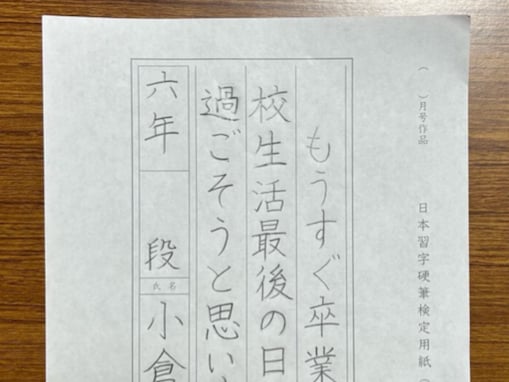 ( )月号作品
日本習字硬筆検定用紙(
もうすぐ卒業
校生活最後の日
過ごそうと思い
六年
段
氏名
小倉